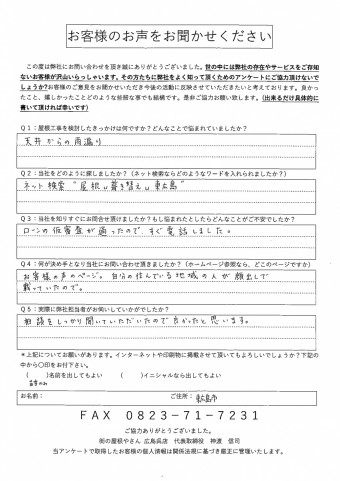 お客様のお声をお聞かせください
この度は弊社にお問い合わせを頂き誠にありがとうございました。世の中には弊社の存在やサービスをご存知
ないお客様が沢山いらっしゃいます。その方たちに弊社をよく知って頂くためのアンケートにご協力頂けないで
しょうか?お客様のご意見をお聞かせいただき今後の活動に反映させていただきたいと考えております。良かっ
たこと、嬉しかったことどのような些細な事でも結構です。是非ご協力お願い致します。(出来るだけ具体的に
書いて頂ければ幸いです)
Q1:屋根工事を検討したきっかけは何ですか?どんなことで悩まれていましたか?
天井からの雨漏り
Q2:当社をどのように探しましたか?(ネット検索ならどのようなワードを入れられましたか?)
ネット検索"屋根 葺き替え 東広島"
Q3:当社を知りすぐにお問合せ頂けましたか?もし悩まれたとしたらどんなことがご不安でしたか?
ローンの仮審査が通ったので、すぐ電話しました。
Q4:何が決め手となり当社にお問い合わせ頂きましたか?(ホームページ参照なら、どこのページですか)
お客様の声のページ。自分の住んでいる地域の人が顔出しで
載っていたので。
Q5:実際に弊社担当者がお伺いしていかがでしたか?
相談をしっかり聞いていただいたので良かったと思います。
＊上記についてお願いがあります。インターネットや印刷物に掲載させて頂いてもよろしいでしょうか?下記の
中から〇印をお付下さい。
( )名前を出してもよい ( )イニシャルなら出してもよい
苗字のみ
お名前: ご住所:東広島市
FAX 0823-71-7231
ご協力ありがとうございました。
街の屋根やさん 広島呉店 代表取締役 神渡 信司
当アンケートで取得したお客様の個人情報は関係法規に基づき厳正に管理いたします。